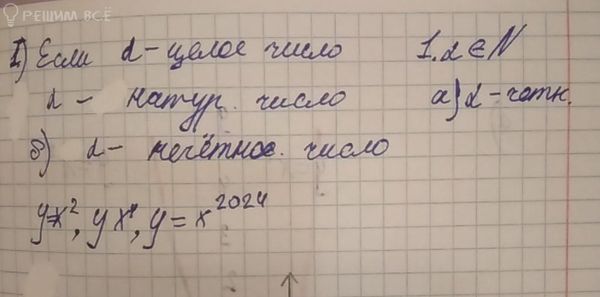 РЕШИМ ВСЁ
I) Если α - целое число 1. α ∈ N
α - натур. число а) α - четн.
б) α - нечётное. число
y=x², y x⁴, y = x²⁰²⁴